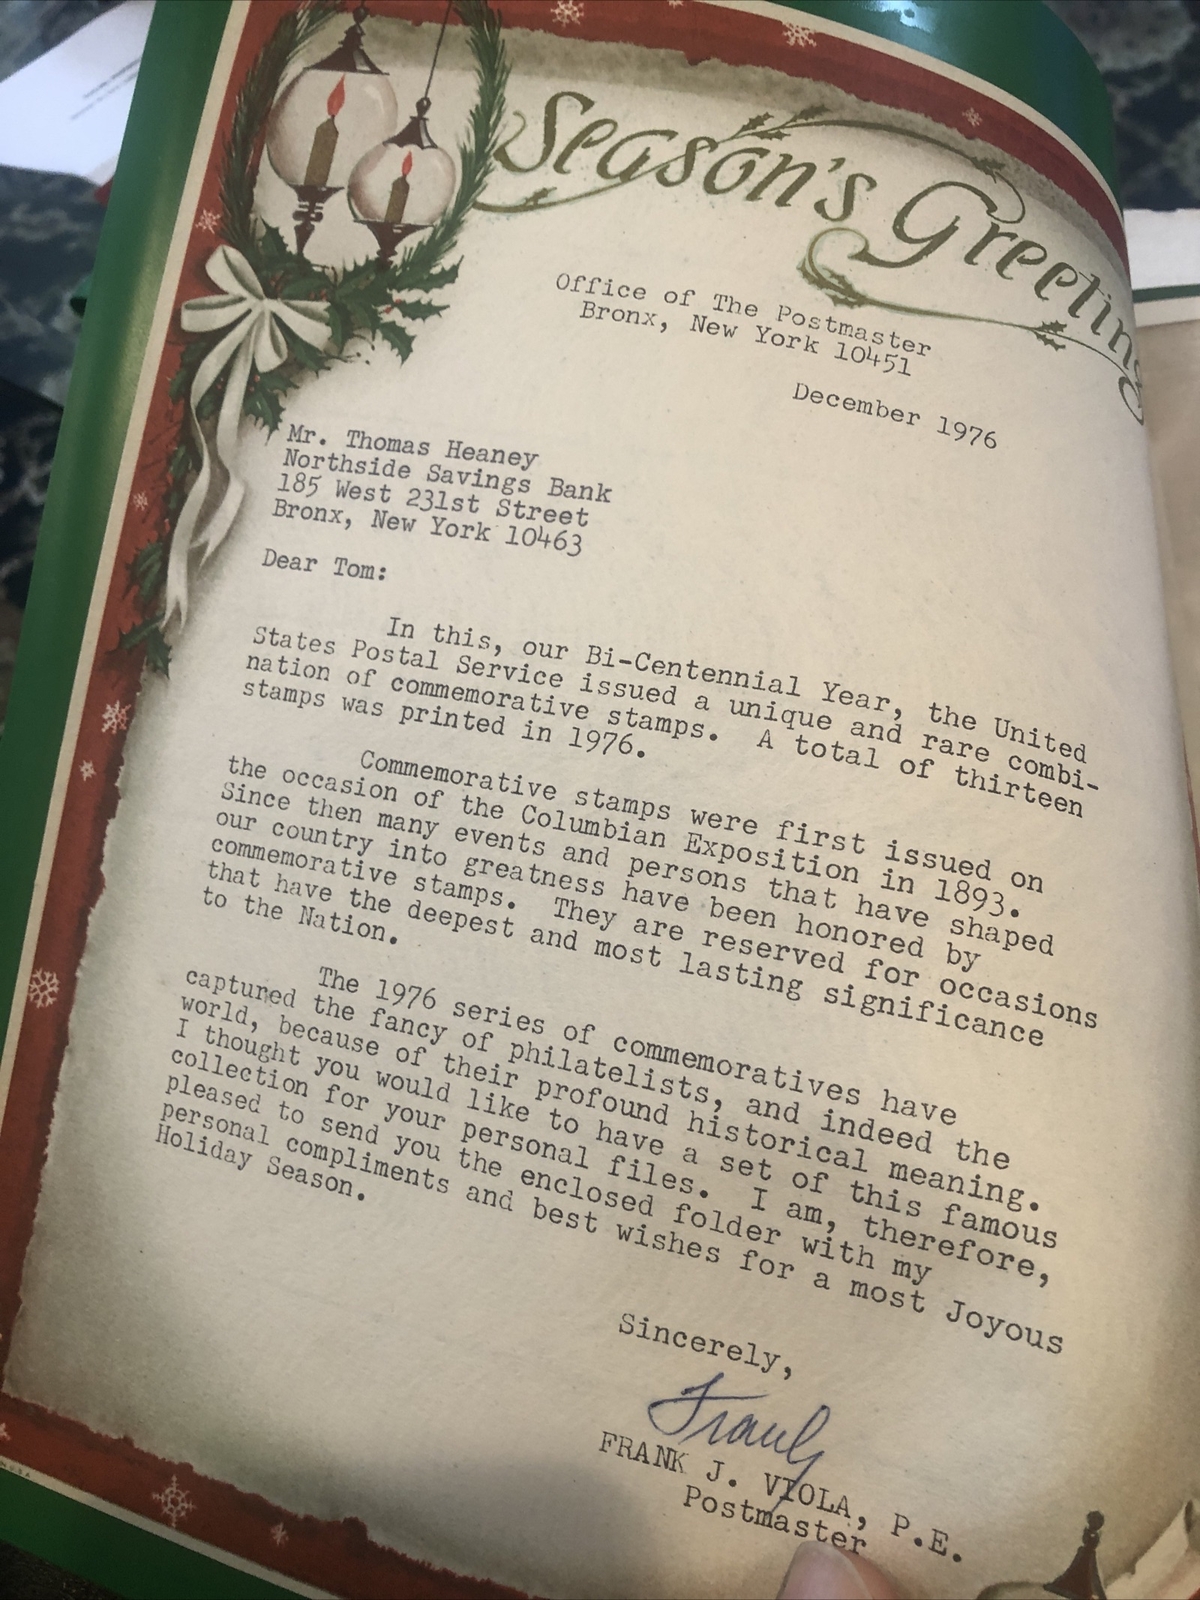 Season's Greeting
Office of The Postmaster
Bronx, New York 10451
December 1976
Mr. Thomas Heaney
Northside Savings Bank
185 West 231st Street
Bronx, New York 10463
Dear Tom:
In this, our Bi-Centennial Year, the United
States Postal Service issued a unique and rare combi-
nation of commemorative stamps. A total of thirteen
stamps was printed in 1976.
Commemorative stamps were first issued on
the occasion of the Columbian Exposition in 1893.
Since then many events and persons that have shaped
our country into greatness have been honored by
commemorative stamps. They are reserved for occasions
that have the deepest and most lasting significance
to the Nation.
The 1976 series of commemoratives have
captured the fancy of philatelists, and indeed the
world, because of their profound historical meaning.
I thought you would like to have a set of this famous
collection for your personal files. I am, therefore,
pleased to send you the enclosed folder with my
personal compliments and best wishes for a most Joyous
Holiday Season.
Sincerely,
Frank
FRANK J. VIOLA, P.E.
Postmaster